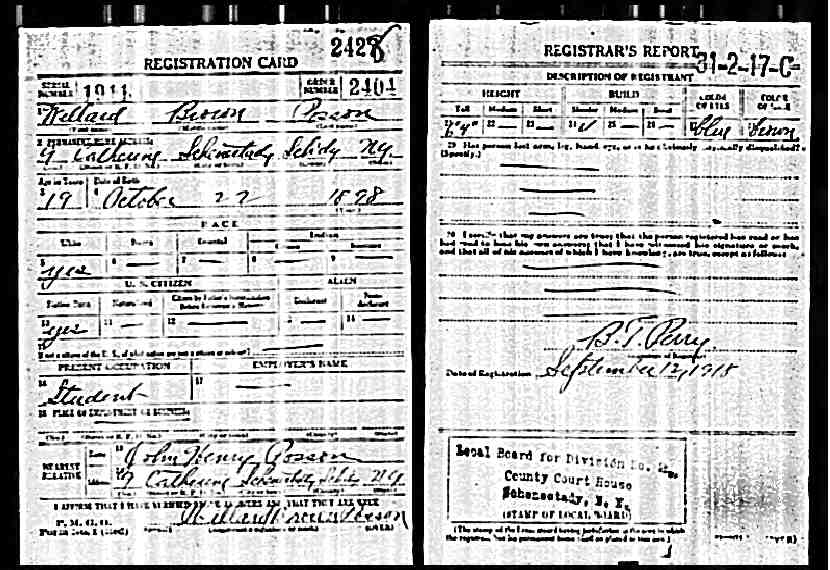 2428
REGISTRATION CARD
SERIAL NUMBER 1911
ORDER NUMBER 2404
Willard Brown Posson
9 Catherine Schenectady Schdy N.Y.
Age in Years
Date of Birth
19 October 22 18
RACE
White
Oriental
Indian
5 yes 6 — 7 — 8 — 9 —
U. S. CITIZEN
ALIEN
Native Born
Naturalized
Declarant
10 yes 11 — 12 — 14 —
PRESENT OCCUPATION
EMPLOYER'S NAME
Student
John Henry Posson
NEAREST RELATIVE
9 Catherine Schenectady Schdy N.Y.
I AFFIRM THAT I HAVE VERIFIED ABOVE ANSWERS AND THAT THEY ARE TRUE
Willard Brown Posson
(OVER)
REGISTRAR'S REPORT
31-2-17-C
DESCRIPTION OF REGISTRANT
HEIGHT
BUILD
COLOR OF EYES
COLOR OF HAIR
Tall Medium Short Slender Medium Stout
22 — 23 — 25 — 26 — Blue Brown
29 Has person lost arm, leg, hand, eye, or is he obviously physically disqualified?
(Specify.)
30 I certify that my answers are true; that the person registered has read or has
had read to him his own answers; that I have witnessed his signature or mark,
and that all of his answers of which I have knowledge are true, except as follows:
B. T. Perry
Date of Registration September 12, 1918
Local Board for Division No.
County Court House
Schenectady, N. Y.
(STAMP OF LOCAL BOARD)
(The stamp of the Local Board having jurisdiction of the area in which
the registrant has his permanent home shall be placed in this box.)